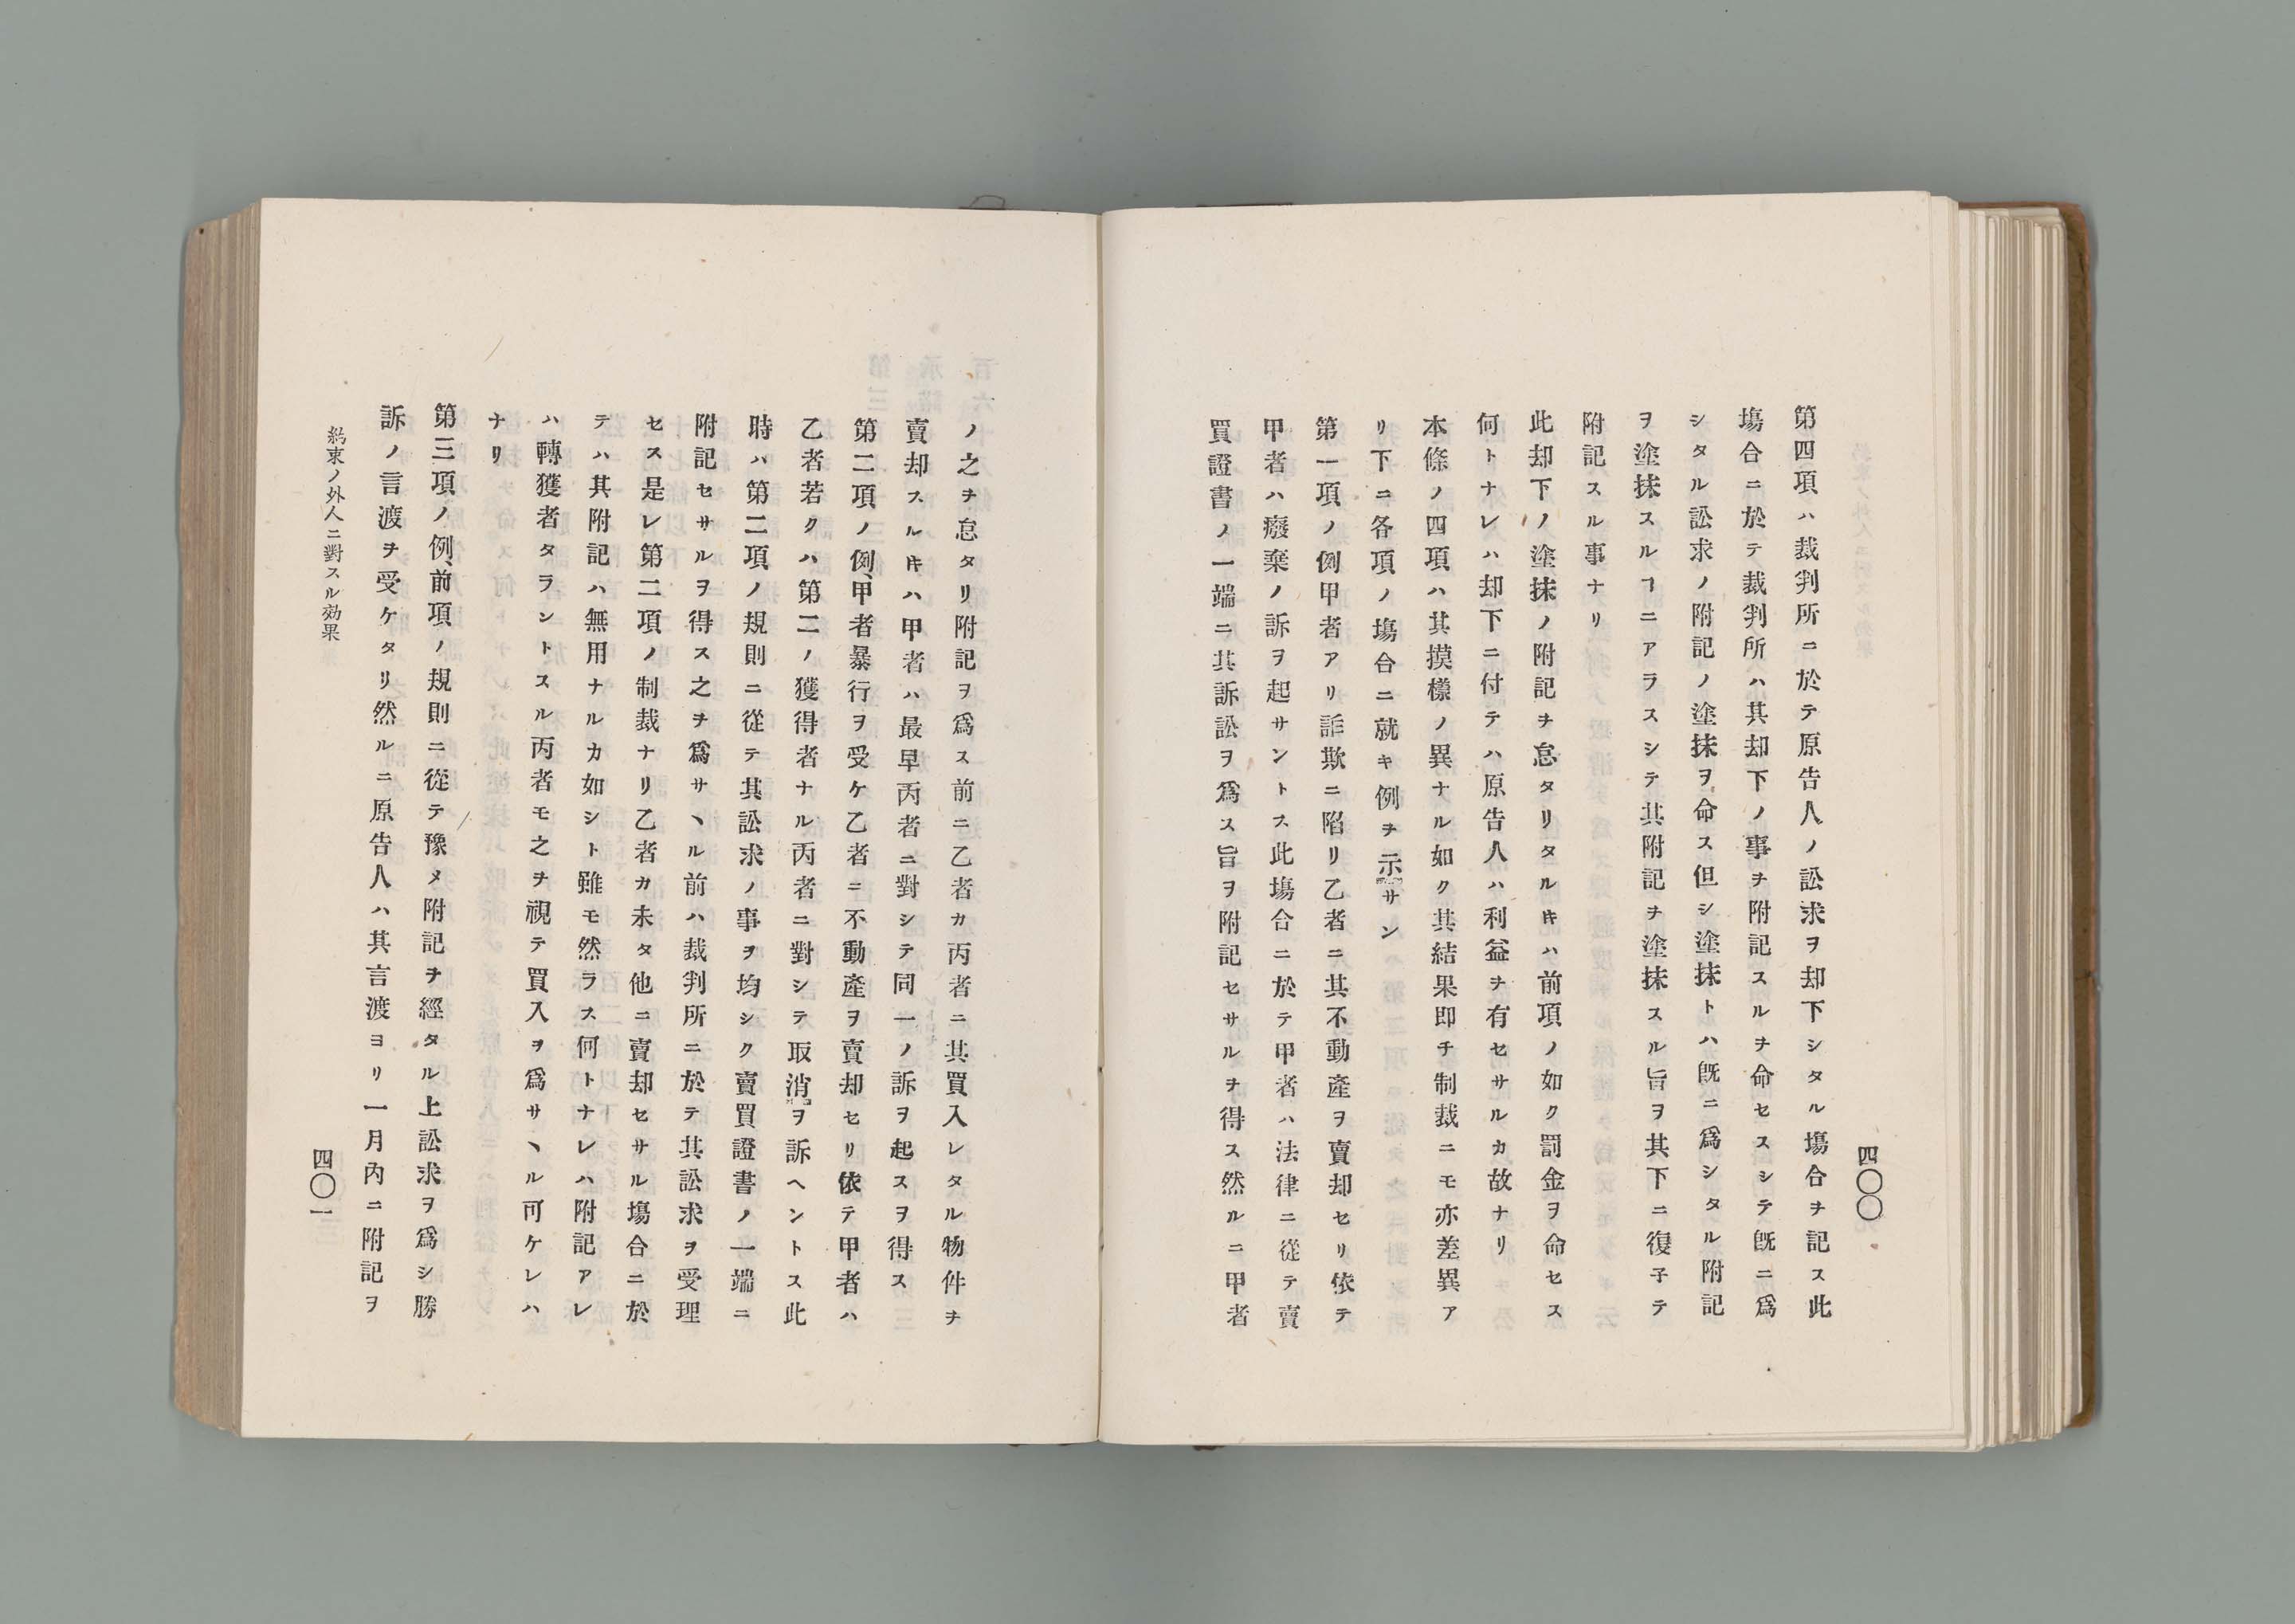 四〇〇
第四項ハ裁判所ニ於テ原告人ノ訟求ヲ却下シタル塲合ヲ記ス此
塲合ニ於テ裁判所ハ其却下ノ事ヲ附記スルヲ命セスシテ既ニ爲
シタル訟求ノ附記ノ塗抹ヲ命ス但シ塗抹トハ既ニ爲シタル附記
ヲ塗抹スルヿニアラスシテ其附記ヲ塗抹スル旨ヲ其下ニ復子テ
附記スル事ナリ
此却下ノ塗抹ノ附記ヲ怠タリタルキハ前項ノ如ク罰金ヲ命セス
何トナレハ却下ニ付テハ原告人ハ利益ヲ有セサルカ故ナリ
本條ノ四項ハ其摸樣ノ異ナル如ク其結果即チ制裁ニモ亦差異ア
リ下ニ各項ノ塲合ニ就キ例ヲ示サン
第一項ノ例甲者アリ詐欺ニ陷リ乙者ニ其不動產ヲ賣却セリ依テ
甲者ハ癈棄ノ訴ヲ起サントス此塲合ニ於テ甲者ハ法律ニ從テ賣
買證書ノ一端ニ其訴訟ヲ爲ス旨ヲ附記セサルヲ得ス然ルニ甲者
ノ之ヲ怠タリ附記ヲ爲ス前ニ乙者カ丙者ニ其買入レタル物件ヲ
賣却スルキハ甲者ハ最早丙者ニ對シテ同一ノ訴ヲ起スヲ得ス
第二項ノ例、甲者暴行ヲ受ケ乙者ニ不動產ヲ賣却セリ依テ甲者ハ
乙者若クハ第二ノ獲得者ナル丙者ニ對シテ取消ヲ訴ヘントス此
時ハ第二項ノ規則ニ從テ其訟求ノ事ヲ均シク賣買證書ノ一端ニ
附記セサルヲ得ス之ヲ爲サヽル前ハ裁判所ニ於テ其訟求ヲ受理
セス是レ第二項ノ制裁ナリ乙者カ未タ他ニ賣却セサル塲合ニ於
テハ其附記ハ無用ナルカ如シト雖モ然ラス何トナレハ附記アレ
ハ轉獲者タラントスル丙者モ之ヲ視テ買入ヲ爲サヽル可ケレハ
ナリ
第三項ノ例、前項ノ規則ニ從テ豫メ附記ヲ經タル上訟求ヲ爲シ勝
訴ノ言渡ヲ受ケタリ然ルニ原告人ハ其言渡ヨリ一月內ニ附記ヲ
約束ノ外人ニ對スル効果
四〇一